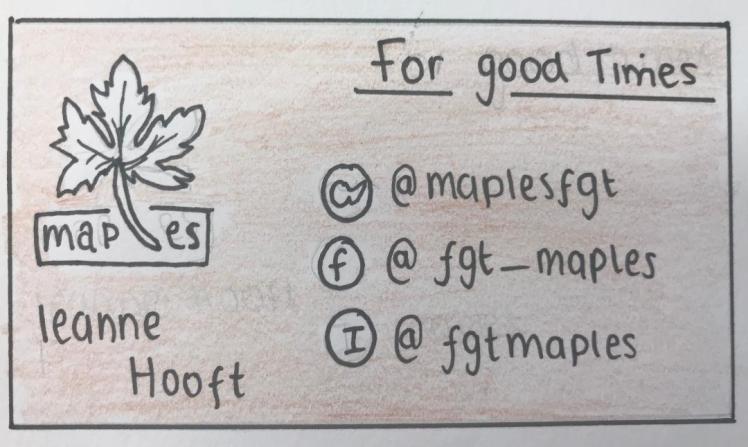 For good Times
maples
@maplesfgt
f @ fgt_maples
I @ fgtmaples
leanne
Hooft